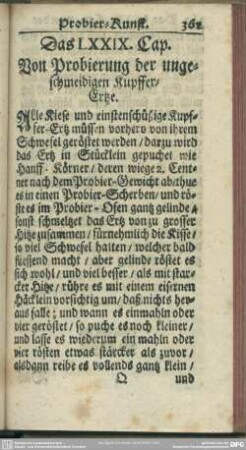 Probier-Kunst. 361
Das LXXIX. Cap.
Von Probierung der unge-
schmeidigen Kupffer-
Ertze.
Alle Kiese und einstenschüßige Kupf-
fer-Ertz müssen vorhero von ihrem
Schwefel geröstet werden / darzu wird
das Ertz in Stücklein gepuchet wie
Hanff-Körner / deren wiege 2. Cent-
ner nach dem Probier-Gewicht ab / thue
es in einen Probier-Scherben / und rö-
ste es im Probier-Ofen gantz gelinde /
sonst schmeltzet das Ertz von zu grosser
Hitze zusammen / fürnehmlich die Kisse /
so viel Schwefel halten / welcher bald
fliessend macht / aber gelinde röstet es
sich wohl / und viel besser / als mit star-
cker Hitze / rühre es mit einem eisernen
Häcklein vorsichtig um / daß nichts her-
aus falle; und wann es einmahl oder
vier geröstet / so puche es noch kleiner /
und lasse es wiederum ein mahl oder
vier rösten etwas stärcker als zuvor /
alsdann reibe es vollends gantz klein /
Q und